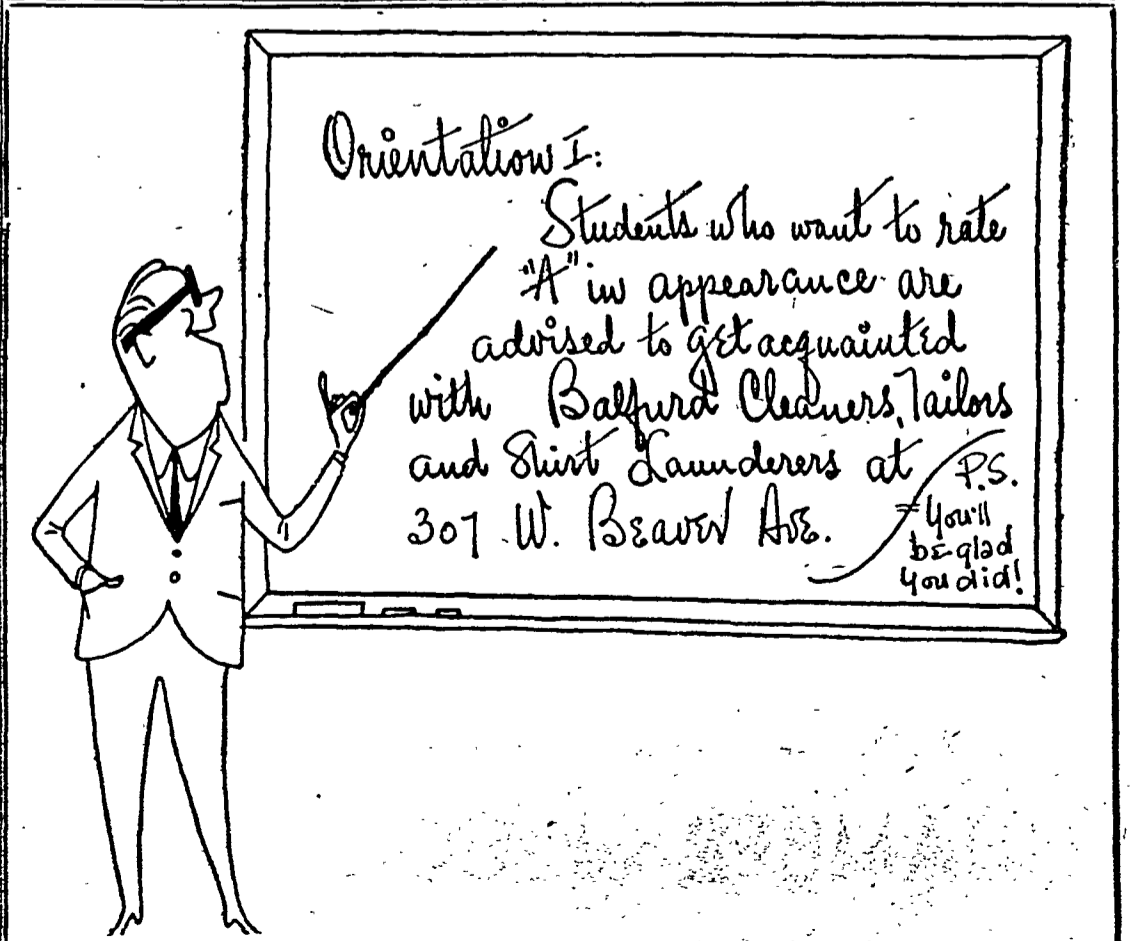 Orientation I:
Students who want to rate
"A" in appearance are
advised to get acquainted
with Balfurd Cleaners, Tailors
and Shirt Launderers at
307 W. Beaver Ave.
P.S.
You'll
be glad
you did!